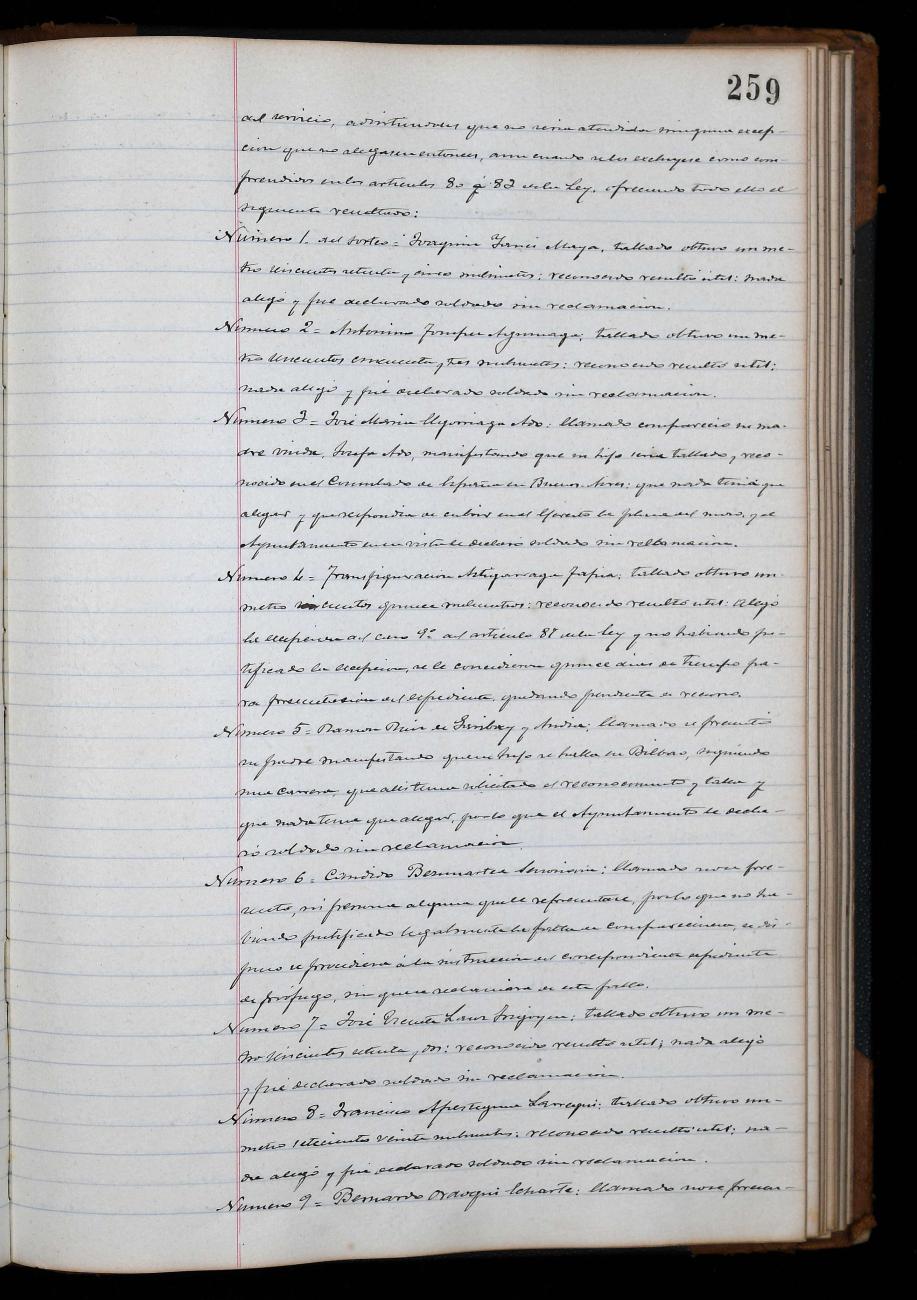 259
del servicio, advirtiendoles que no seria atendida ninguna excep-
cion que no alegasen entonces, aun cuando se les excluyese como com-
prendidos en los articulos 80 y 83 de la Ley, ofreciendo todo ello el
siguiente resultado:
Número 1 del sorteo = Joaquin Maya, tallado obtuvo un me-
tro seiscientos setenta y cinco milimetros: reconocido resultó util: nada
alegó y fué declarado soldado sin reclamacion.
Número 2 = Antonino: tallado obtuvo un me-
tro seiscientos cincuenta y tres milimetros: reconocido resultó util:
nada alegó y fué declarado soldado sin reclamacion.
Número 3 = José Maria Ado: llamado compareció su ma-
dre viuda, Josefa Ado, manifestando que su hijo seria tallado y reco-
nocido en el Consulado de España en Buenos Aires: que nada tenia que
alegar y que respondia de cubrir en el Ejercito la plaza del mozo, y el
Ayuntamiento en su vista le declaró soldado sin reclamacion.
Número 4 = Transfiguracion Astigarraga: tallado obtuvo un
metro seiscientos quince milimetros: reconocido resultó util: alegó
la excepcion del caso 9º del articulo 87 de la ley y no habiendo jus-
tificado la excepcion, se le concedieron quince dias de tiempo pa-
ra presentacion del expediente, quedando pendiente de recurso.
Número 5 = Ramon Ruiz de y Andia; llamado se presentó
su padre manifestando que su hijo se halla en Bilbao, siguiendo
una carrera, que alli tiene solicitado el reconocimiento y talla y
que nada tiene que alegar, por lo que el Ayuntamiento le decla-
ró soldado sin reclamacion.
Número 6 = Cándido: llamado no se pre-
sentó, ni persona alguna que le representase, por lo que no ha-
biendo justificado legalmente la falta de comparecencia, se dis-
puso se procediera á la instruccion del correspondiente expediente
de prófugo, sin que se reclamara de este fallo.
Número 7 = José Vicente Irigoyen: tallado obtuvo un me-
tro seiscientos setenta y dos: reconocido resultó util; nada alegó
y fué declarado soldado sin reclamacion.
Número 8 = Francisco Apesteguia Larregui: tallado obtuvo un
metro setecientos veinte milimetros: reconocido resultó util: na-
da alegó y fué declarado soldado sin reclamacion.
Número 9 = Bernardo: llamado no se presen-